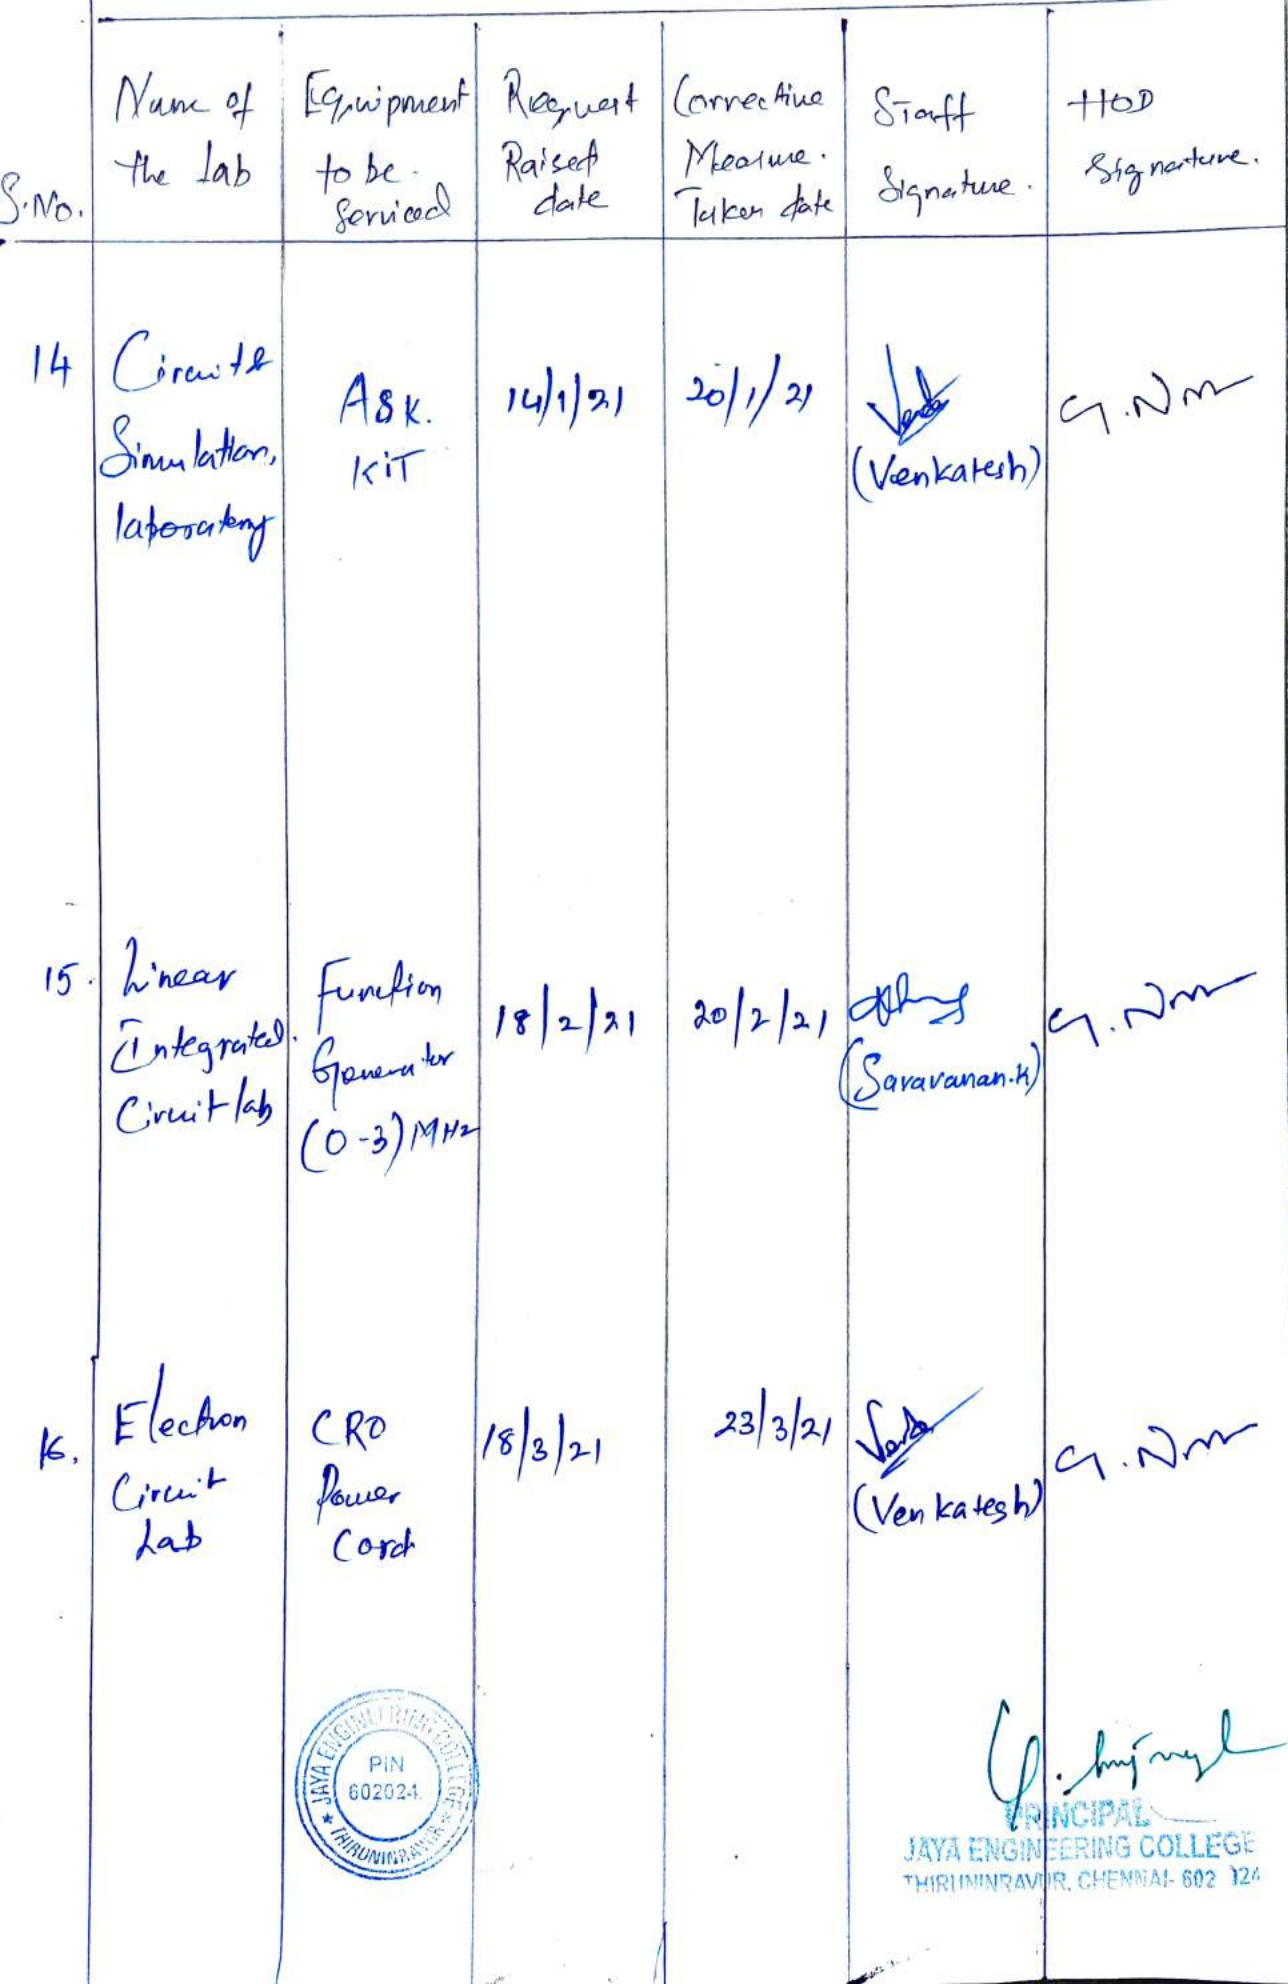 S.No.
Name of
the Lab
Equipment
to be.
Serviced
Request
Raised
date
Corrective
Measure.
Taken date
Staff
Signature.
HOD
Signature.
14
Circuits
Simulation,
laboratory
ASK.
KiT
14/1/21
20/1/21
(Venkatesh)
G.Nm
15.
Linear
Integrated.
Circuit lab
Function
Generator
(0-3) MHz
18/2/21
20/2/21
(Saravanan.K)
G.Nm
16.
Electron
Circuit
Lab
CRO
Power
Cord
18/3/21
23/3/21
(Venkatesh)
G.Nm
JAYA ENGINEERING COLLEGE
PIN
602024.
THIRUNINRAVUR
PRINCIPAL
JAYA ENGINEERING COLLEGE
THIRUNINRAVUR, CHENNAI- 602 024